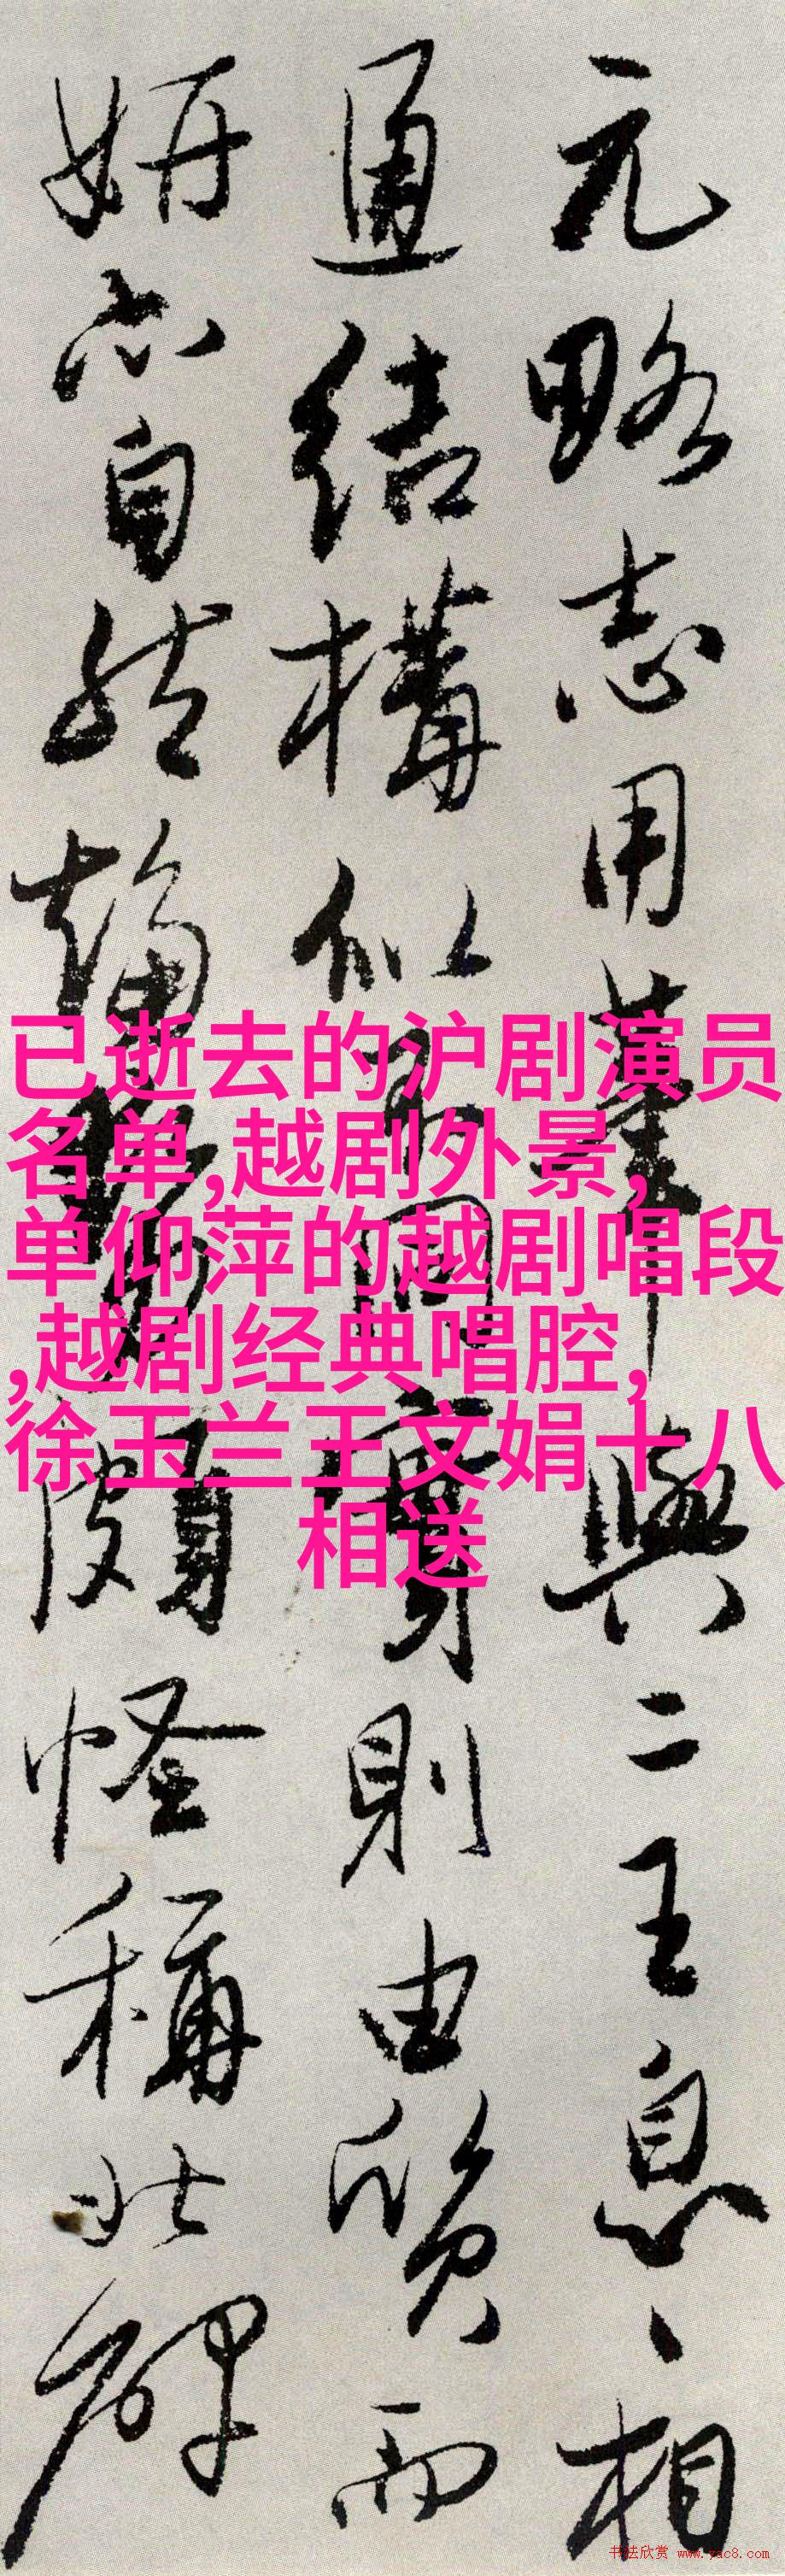 元略志用筆與二王息、相
通結構似則由質而
妍亦自然頗怪稱北碑
已逝去的沪剧演员
名单,越剧外景,
单仰萍的越剧唱段
,越剧经典唱腔,
徐玉兰王文娟十八
相送
书法欣赏 www.yac8.com